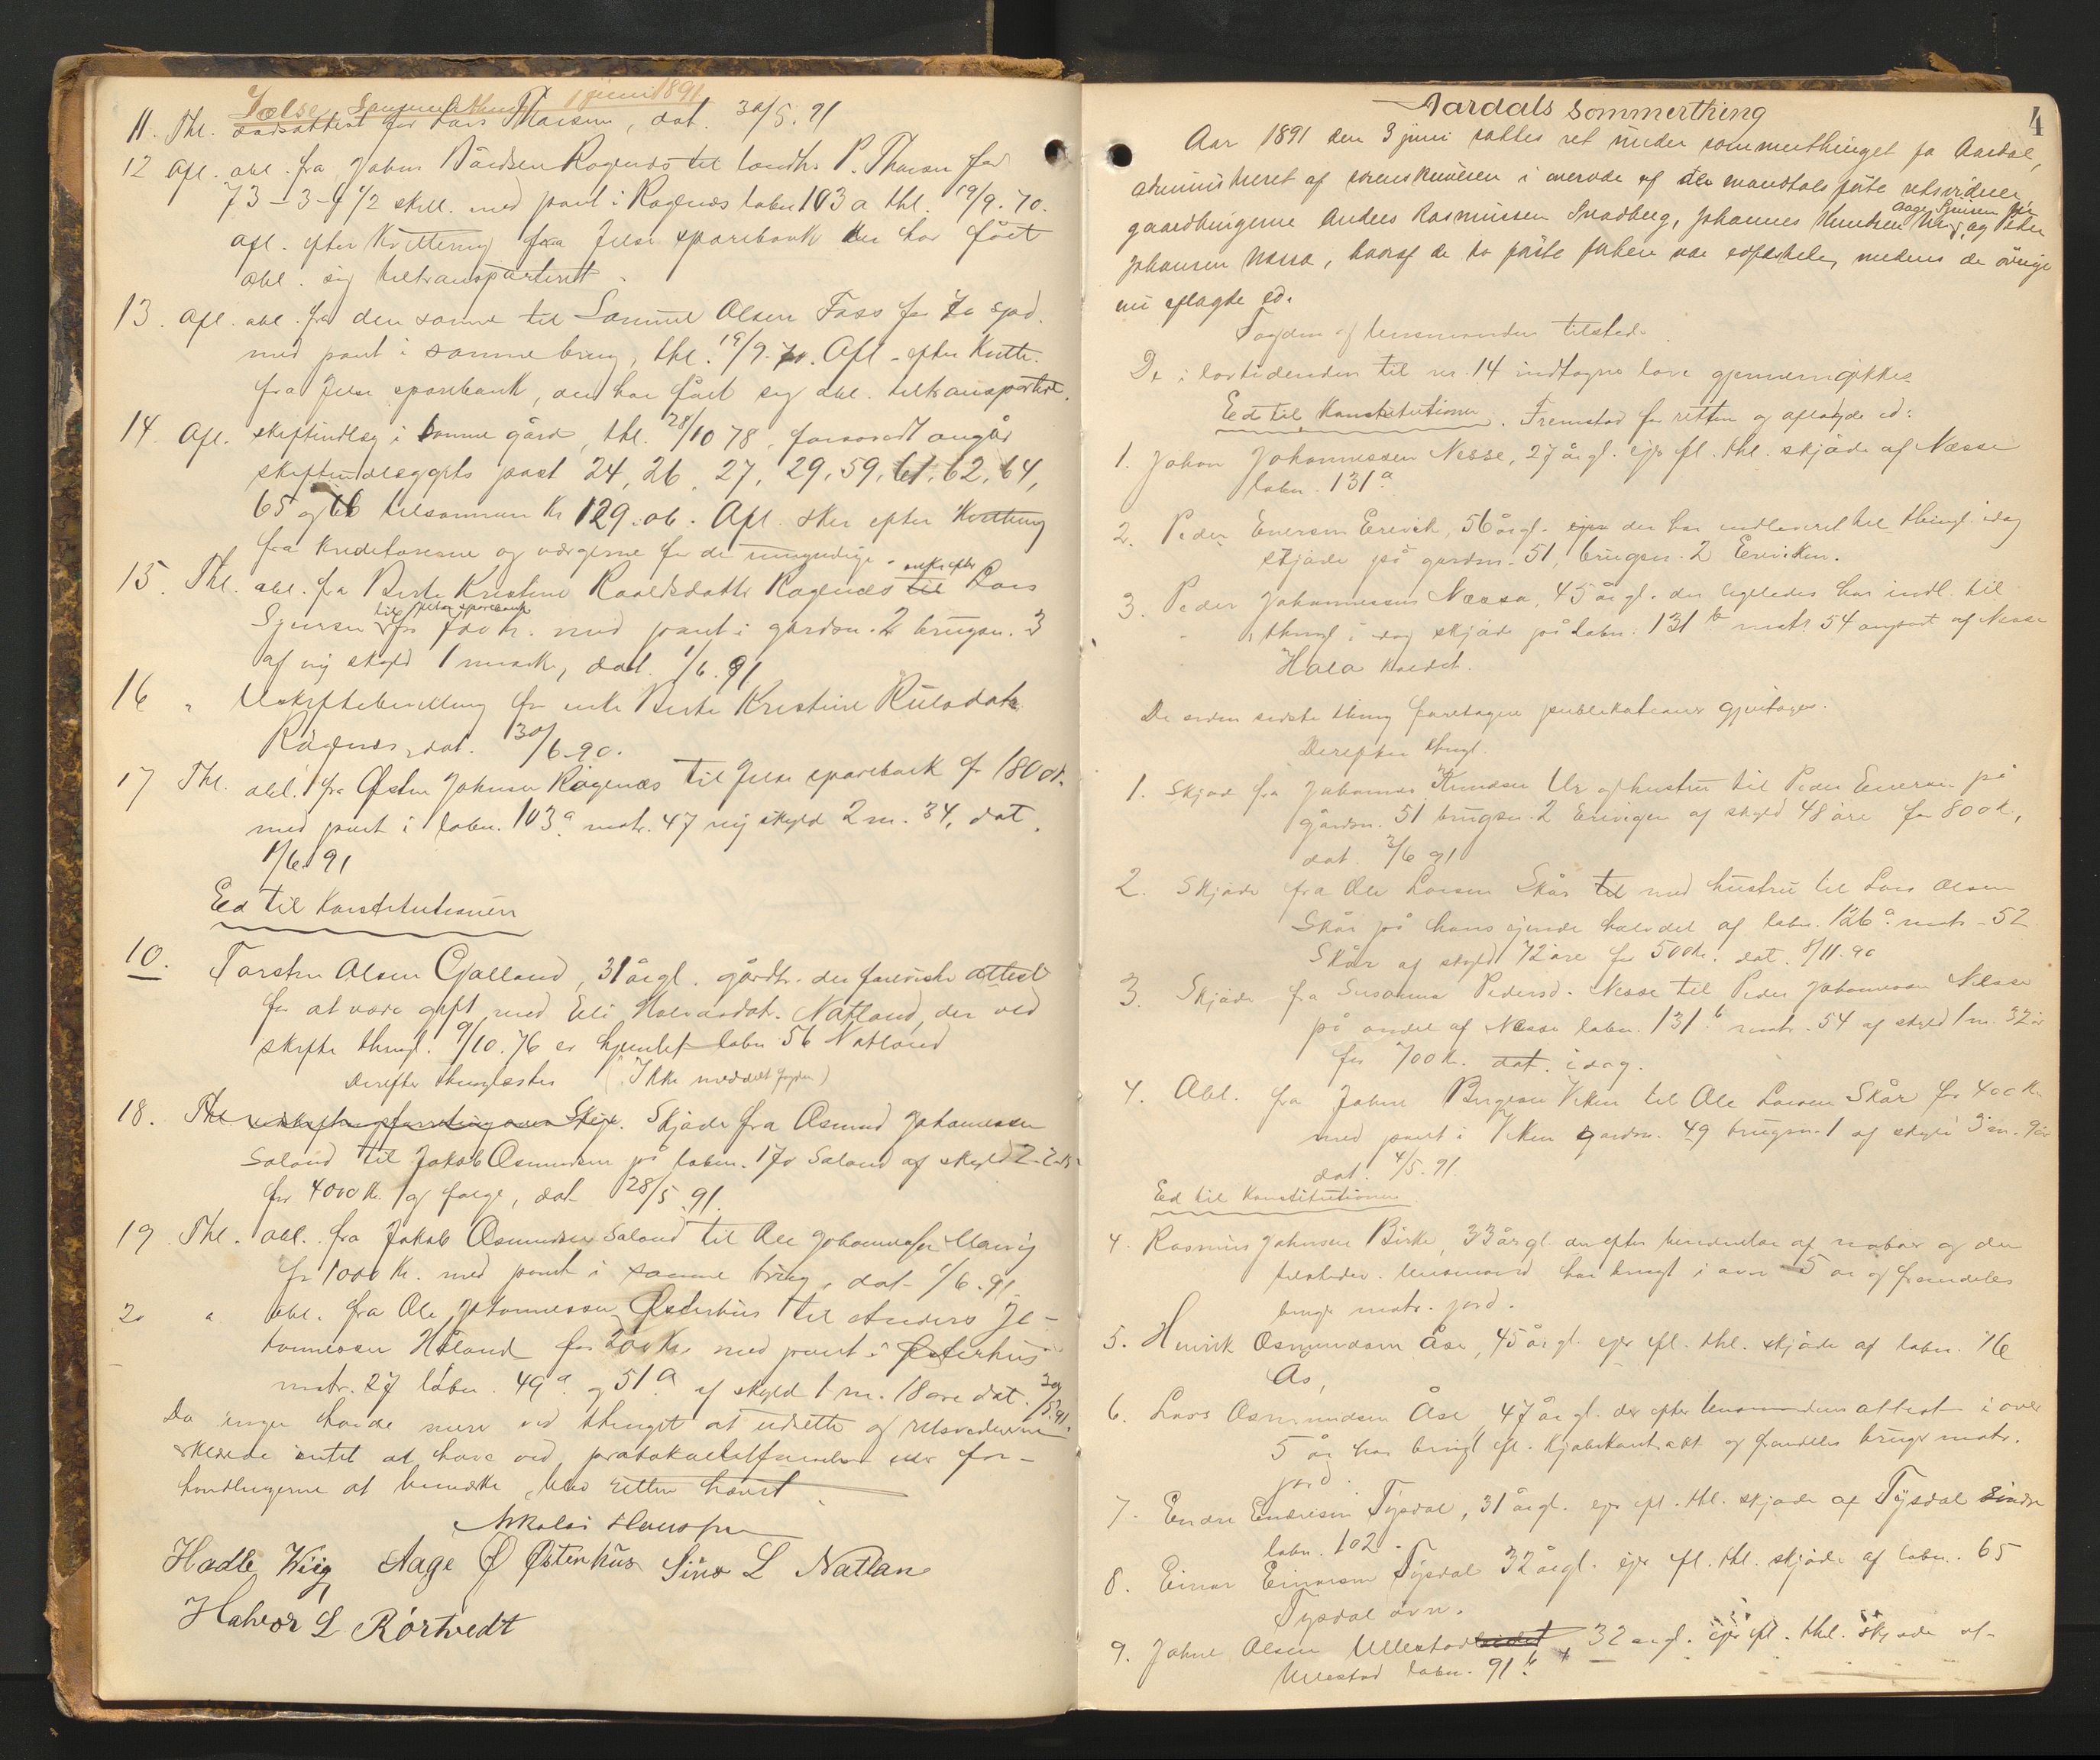 Jælse Sommerthing 1 juni 1891
11. Thl. for Lars Thorsen, dat. 30/5. 91
12 Afl. obl. fra John Bårdsen Ragnæs til landh. P. Thorsen for
73-3-4 1/2 skill. med pant i Ragnæs labn 103 a thl. 19/9. 70.
Afl. efter Kvittering fra Jelse sparebank der har fået
obl. sig tiltransporteret.
13. Afl. obl. fra den samme til Samuel Olsen Foss for 70 spd.
med pant i samme brug, thl. 19/9. 70. Afl. efter Kvitt.
fra Jelse sparebank, der har fået sig obl. tiltransporteret.
14. Afl. skifteudlæg i samme gård, thl. 28/10 78, forsavidt angår
skifteudlæggets post 24, 26, 27, 29, 59, 61, 62, 64,
65 og 66 tilsammen Kr 129.06. Afl. sker efter Kvittering
fra Kreditorerne og værgerne for de umyndige.
15. Thl. obl. fra Berte Kristine Roaldsdatter Ragnæs enke efter Lars
Sjursen til Jelse sparebank for 700 kr. med pant i gårdsn. 2 brugsn. 3
af ny skyld 1 mark, dat. 1/6. 91
16 " Uskiftebevilling for enke Berte Kristine Roladatter
Ragnæs, dat. 30/6 90.
17 Thl. obl. fra Østen Johnsen Ragnæs til Jelse sparebank for 1800 kr.
med pant i labn. 103 a matr. 47 ny skyld 2 m. 34, dat.
1/6. 91
Ed til Konstitutionen
10. Torsten Olsen Gjalland, 31 årgl. gårdbr. der foreviste attest
for at være gift med Eli Halvorsdat. Natland, der ved
skifte thingl. 9/10. 76 er hjemlet labn 56 Natland
Derefter thinglæstes (Ikke meddelt fogden)
18. Thl Skjøde fra Osmund Johannessen
Saland til Jakob Osmundsen på labn. 170 Saland af skyld 2-2-
for 4000 Kr. og folge, dat. 28/5 91.
19 Thl. obl. fra Jakob Osmundsen Saland til Ole Johannessen
for 1000 Kr. med pant i samme brug, dat. 1/6. 91
20 " obl. fra Ole Johannessen Østerhus til Anders Jo-
hannessen Håland for 200 Kr. med pant i Østerhus
matr. 27 labn. 49 a og 51 a af skyld 1 m. 18 øre dat. 30/5 91.
Da ingen havde mere ved thinget at udrette og retsvidnerne
erklærede intet at have ved protokoltilførselen eller for-
handlingerne at bemærke, blev retten hævet.
Nikolai
Hadle Wiig Aage Ø Østenhus Sivert L Natlan
Halvor L Rørtvedt
Aardals Sommerthing
4
Aar 1891 den 3 juni sattes ret under sommerthinget for Aardal,
administreret af sorenskriveren i overvær af de mandtalsførte retsvidner
gaardbrugerne Anders Rasmussen Svadberg, Johannes Knudsen Ur, Aage Sjursen og Peder
Johansen Nessa, hvoraf de to første forhen var edfæstede, medens de øvrige
nu aflagde ed.
Fogden og lensmanden tilstede.
De i lovtidenden til nr. 14 indtagne love gjennemgikkes
Ed til Konstitutionen. Fremstod for retten og aflagde ed:
1. Johan Johannessen Nesse, 27 årgl. ejer efl. thl. skjøde af Næsse
labn. 131 a
2. Peder Enersen Erevik, 56 årgl. ejer der har indleveret til thingl. idag
skjøde på gardsn. 51, brugsn. 2 Ereviken.
3. Peder Johannessen Næssa, 45 årgl. der ligeledes har indl. til
thingl. i dag skjøde på labn. 131 b matr. 54 anpart af Nesse
Hala kaldet.
De siden sidste thing foretagne publikationer gjentoges.
Derefter thingl.
1. Skjøde fra Johannes Knudsen Ur og hustru til Peder Enersen på
gårdsn. 51 brugsn. 2 Ereviken af skyld 48 øre for 800 kr,
dat. 3/6 91
2. Skjøde fra Ole Larsen Skår til med hustru til Lars Olsen
Skår på hans ejende halvdel af labn. 126 a matr. 52
Skår af skyld 72 øre for 500 kr. dat. 8/11. 90
3. Skjøde fra Susanna Pedersd. Nesse til Peder Johannessen Nesse
på andel af Nesse labn. 131 b matr. 54 af skyld 1 m. 32 ør
for 700 Kr. dat. i dag.
4. Obl. fra John Birgesen Viken til Ole Larsen Skår for 400 Kr
med pant i Viken gardsn. 49 brugsn. 1 af skyld 3 m. 9 ør
dat. 4/5. 91.
Ed til Konstitutionen
4. Rasmus Johnsen Birke, 33 årgl. der efter af naboer og den
tilstedev. lensmand har brugt i over 5 år og fremdeles
bruger matr. jord.
5. Henrik Osmundsen Åse, 45 årgl. ejer efl. thl. skjøde af labn. 76
Ås,
6. Lars Osmundsen Åse, 47 årgl. der efter lensmandens attest i over
5 år har brugt efl. Kjøbekontrakt og fremdeles bruger matr.
jord.
7. Endre Endresen Tysdal, 31 årgl. ejer efl. thl. skjøde af Tysdal
labn. 102.
8. Einar Einarsen Tysdal 32 årgl. ejer efl. thl. skjøde af labn. 65
Tysdal øvn.
9. John Olsen Ullestad, 32 årgl. ejer efl. thl. skjøde af
Ullestad labn. 91 b